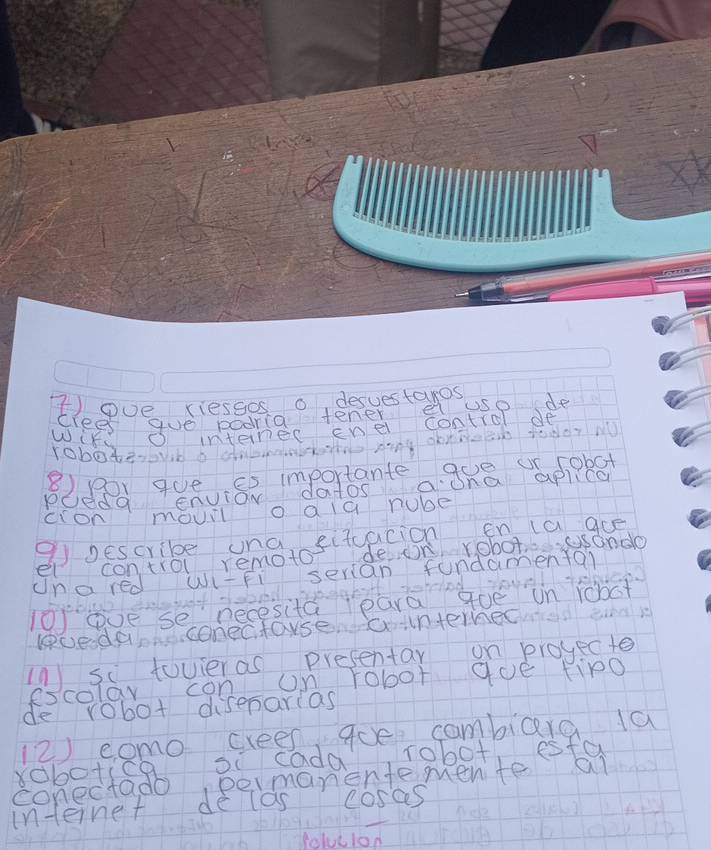 7) que riesgos o desvestajos
crees que podria tener el uso de
wifi o internec en el control de
robots
8) por que es importante que un robot
pueda enviar datos a una aplica
cion movil o a la nube
9) Describe una situacion en la que
el control remoto de un robot usando
una red wi-fi serian fundamental
10) que se necesita para que un robot
pueda conectarse a internec
11) si tuvieras presentar un proyecto
escolar con un robot que tipo
de robot diseñarias
12) como crees que cambiara la
robotica si cada robot esta
conectado permanentemente al
internet de las cosas
Solucion